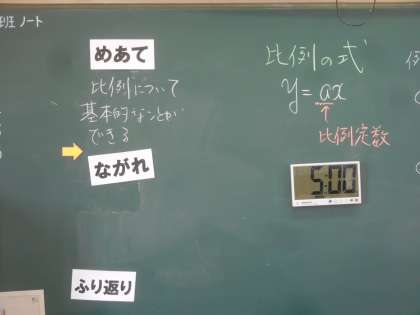 班 ノート
めあて
比例について
基本的なことが
できる
ながれ
ふり返り
比例の式
y=ax
比例定数
5:00
例